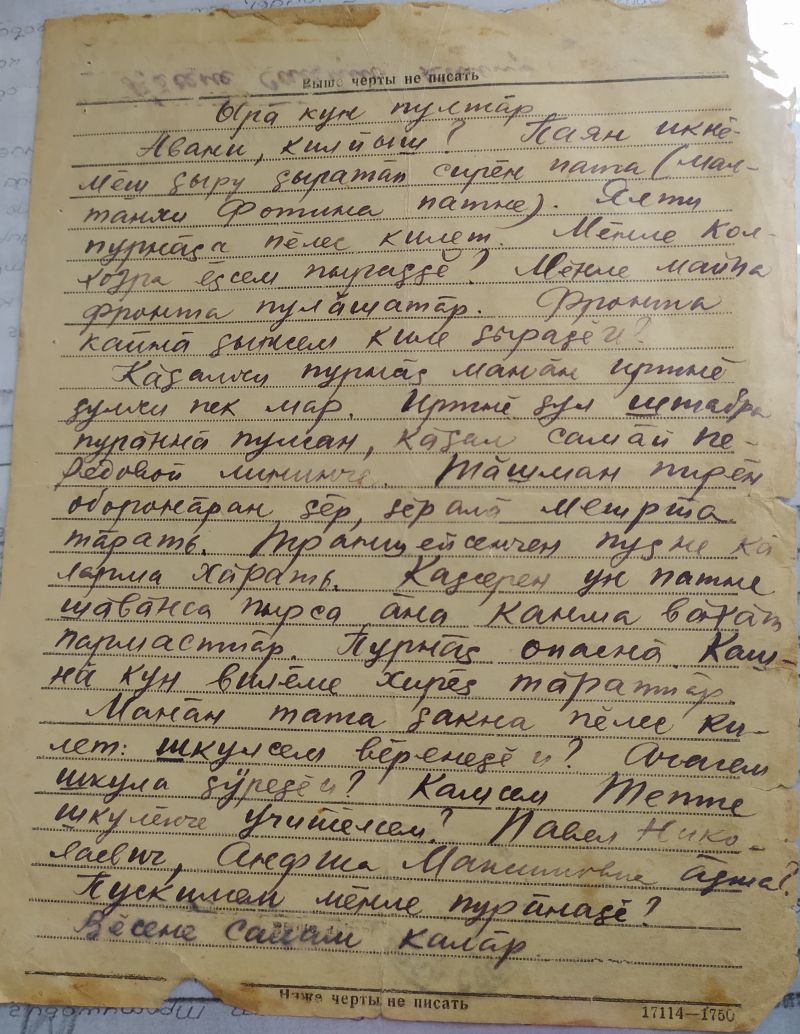 Выше черты не писать
Ыра кун пултăр
Авани, килйыш? Паян икнĕ-
мĕш çыру çыратăп сирĕн пата (мал-
танхи Фотина патне). Ялти
пурнăçа пĕлес килет. Мĕнле кол-
хозра ĕçсем пыраççĕ? Мĕнле майпа
фронта пулăшатăр. Фронта
кайнă çынсем киле çыраçĕ и?
Кăçалхи пурнăç манăн иртнĕ
çулхи пек мар. Иртнĕ çул штабра
пурăннă пулсан, кăçал самай пе-
редовой лининче. Тăшман пирĕн
оборонăран çĕр, çĕрала
тăрать. Траншейсенчен пуç не кă
ларма хăрать. Каçсерен ун патне
шăвăнса пырса ăна канма вăхăт
памастпăр. Пурнăç опаснă. Каш-
нă кун вилĕме хирĕç тăратпăр.
Манăн тата çакна пĕлес ки-
лет: шкулсем вĕренеçĕ и? Ачасем
шкула çӳреçĕ и? Камсем Теппе
шкулĕнче учителсем? Павел Нико-
лаевич, Анфиса Максимовна ăçта?
Пускилсем мĕнле пурăнаçĕ?
Вĕсене салам калăр
Ниже черты не писать
17114—1750